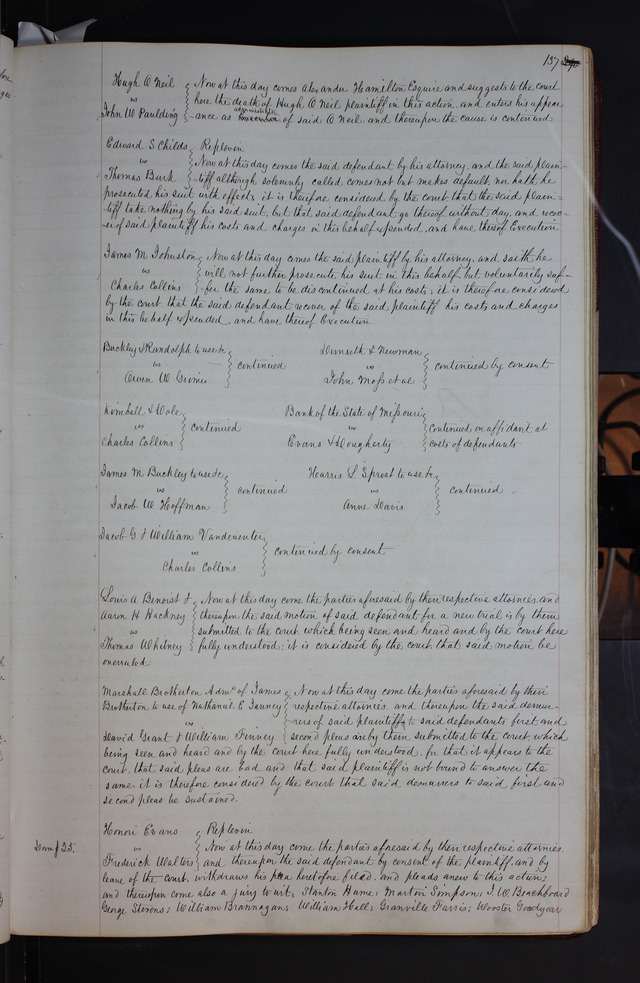 137
Hugh O Neil Now at this day comes Alexander Hamilton Esquire and suggests to the court
vs here the death of Hugh O Neil plaintiff in this action, and enters his appear
John W Paulding ance as administrator of said O Neil, and thereupon the cause is continued
Edward S Childs Replevin
vs Now at this day comes the said defendant by his attorney, and the said plain-
Thomas Burk tiff although solemnly called comes not but makes default, nor hath he
prosecuted his suit with effect; it is therefore considered by the court that the said plain-
tiff take nothing by his said suit, but that said defendant go thereof without day, and recov-
er of said plaintiff his costs and charges in this behalf expended, and have thereof Execution
James M Johnston Now at this day comes the said plaintiff by his attorney, and saith he
vs will not further prosecute his suit in this behalf but voluntarily suf-
Charles Collins fer the same to be discontinued at his costs; it is therefore considered
by the court that the said defendant recover of the said plaintiff his costs and charges
in this behalf expended, and have thereof Execution
Buckley & Randolph to use &c
vs continued
Orwin W Grimes
Hunseth & Newman
vs continued by consent
John Moss et al
Kimball & Dole
vs continued
Charles Collins
Bank of the State of Missouri
vs continued on affidavit at
Evans & Dougherty costs of defendants
James M Buckley to use &c
vs continued
Jacob W Hoffman
Harris L Sprost to use &c
vs continued
Anne Davis
Jacob G & William Vandeventer
vs continued by consent
Charles Collins
Louis A Benoist & Now at this day come the parties aforesaid by their respective attornies and
Aaron H Hackney thereupon the said motion of said defendant for a new trial is by them
vs submitted to the court, which being seen and heard and by the court here
Thomas Whitney fully understood; it is considered by the court, that said motion be
overruled
Marshall Brotherton Admr of James Now at this day come the parties aforesaid by their
Brotherton to use of Nathanial E Janney respective attornies and thereupon the said demur-
vs rers of said plaintiff to said defendants first and
David Grant & William Finney second pleas are by them submitted to the court, which
being seen and heard and by the court here fully understood, for that it appears to the
court that said pleas are bad and that said plaintiff is not bound to answer the
same, it is therefore considered by the court that said demurrers to said first and
second pleas be sustained.
Honori Evans Replevin
Damg 25. vs Now at this day come the parties aforesaid by their respective attornies
Frederick Walters and thereupon the said defendant by consent of the plaintiff, and by
leave of the court withdraws his plea heretofore filed, and pleads anew to this action;
and thereupon come also a jury to wit; Stanton Hume; Martin Simpson; J. W. Beachboard
George Stevens; William Brannagan; William Hall; Granville Farris; Wooster Goodyear